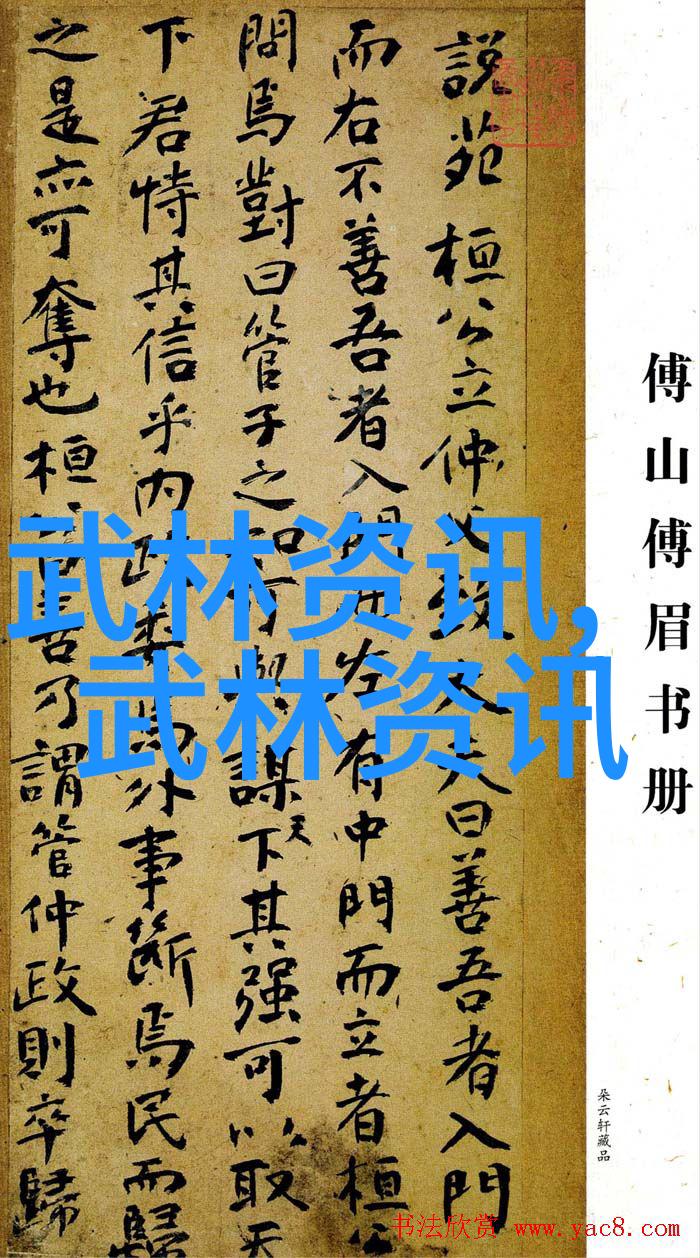 傅山傅眉书册
朵云轩藏品
説苑 桓公立仲父致大夫曰善吾者入門
而右不善吾者入門而左有中門而立者桓公
問焉對曰管子之知可與謀天下其强可以取天
下君恃其信乎内政委焉外事斷焉民而歸
之是亦可奪也桓公曰善乃謂管仲政則卒歸
武林资讯,
武林资讯
书法欣赏 www.yac8.com